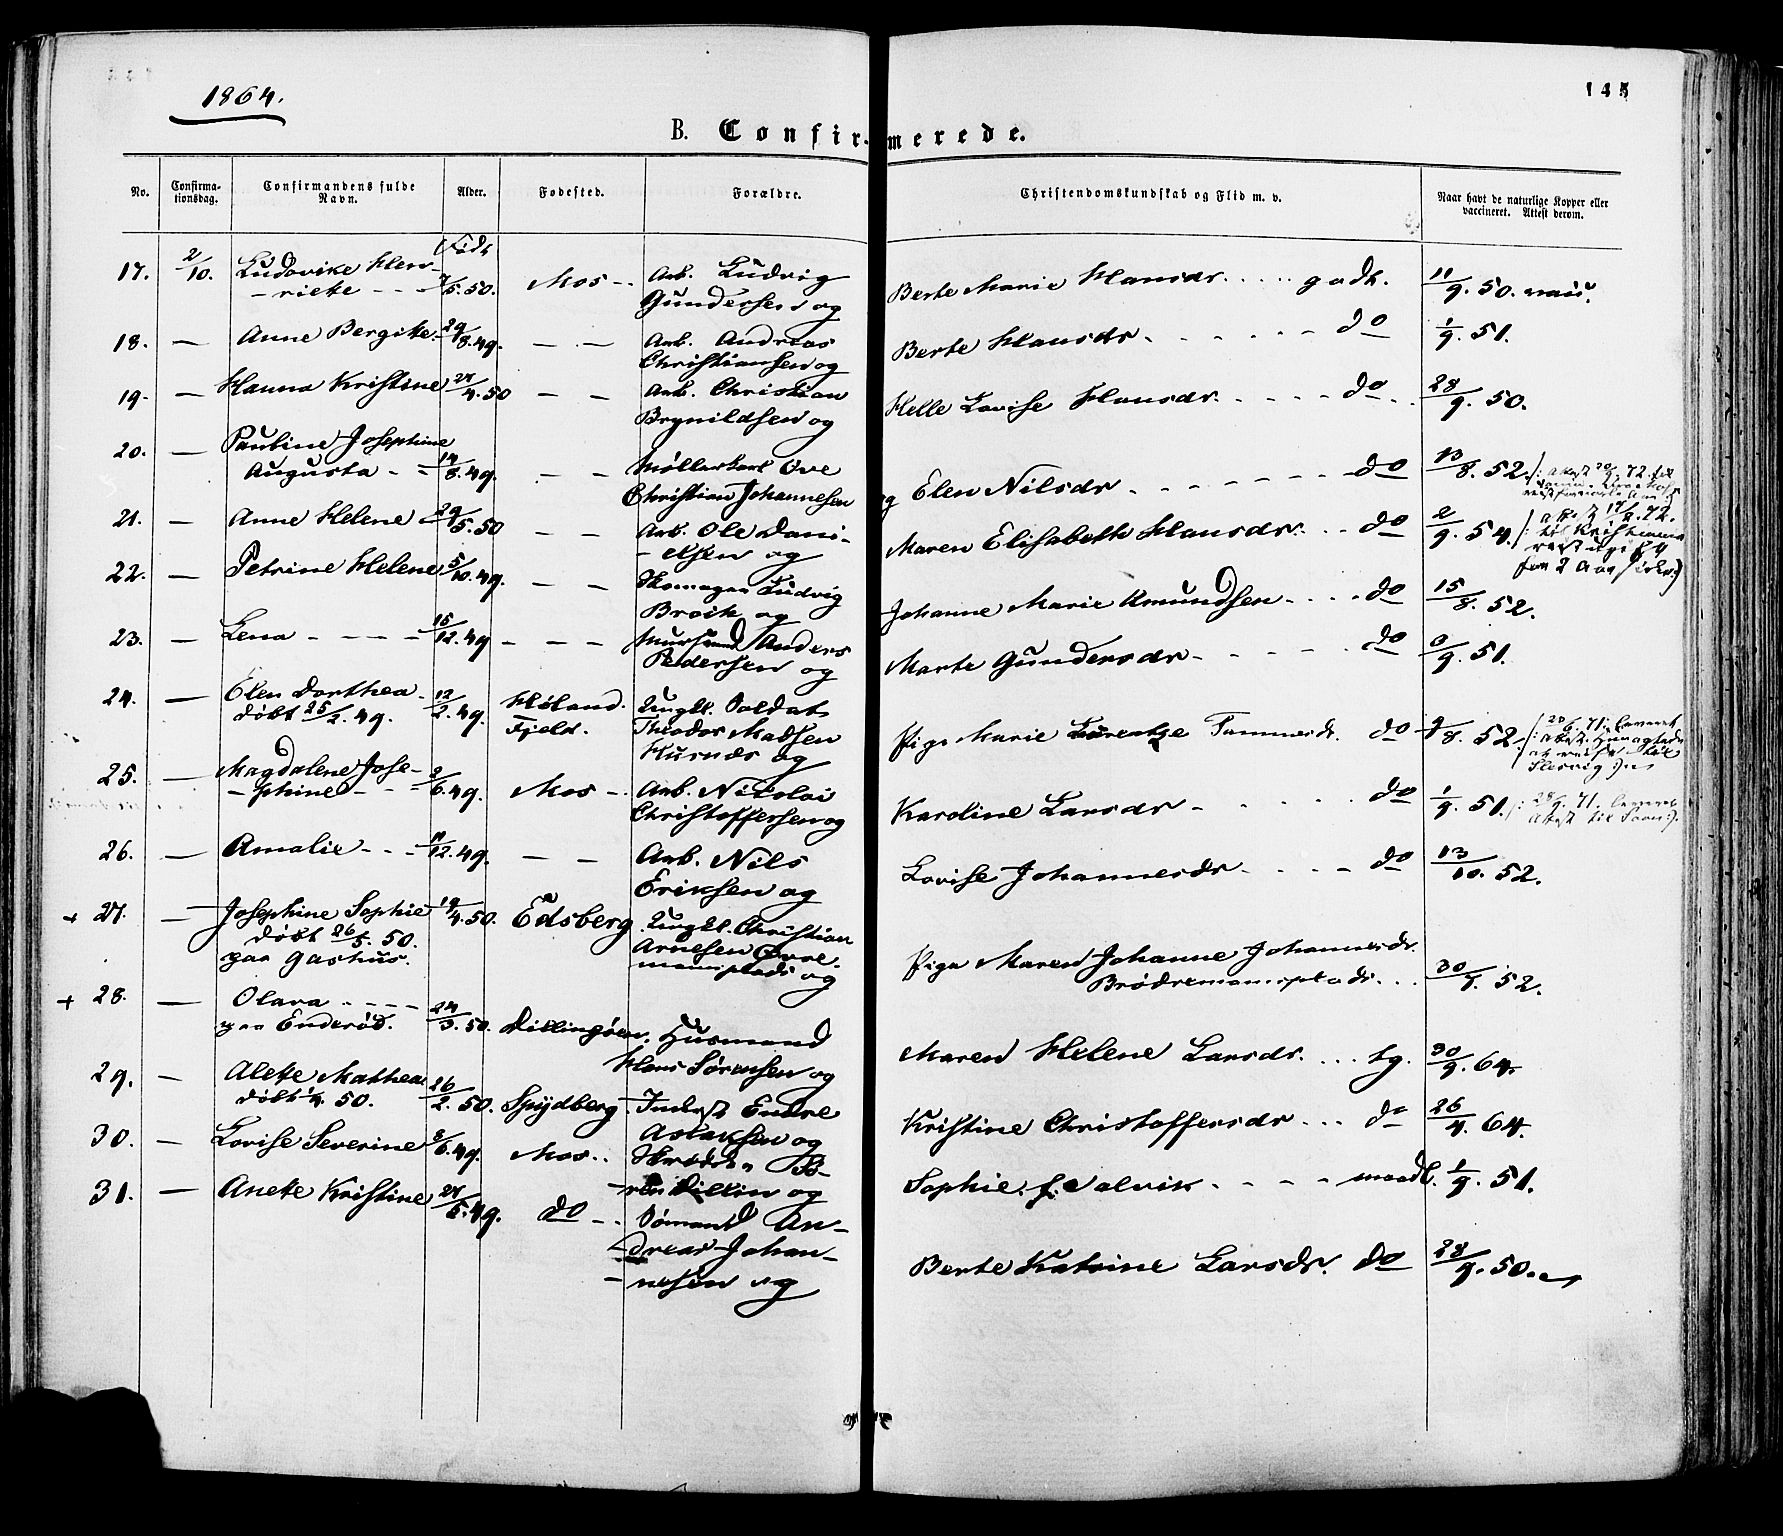 1864.
145
B. Confirmerede.
No.
Confirma-
tionsdag.
Confirmandens fulde
Navn.
Alder.
Fødested.
Forældre.
Christendomskundskab og Flid m. v.
Naar havt de naturlige Kopper eller
vaccineret. Attest derom.
Født
17. 2/10. Ludovike Hen- Mos - Arb. Ludvig
- riette - - 7/5.50. Gundersen og Berte Marie Hansdr. . . . . godt. 11/9. 50. vacc.
18. — Anne Bergitte 29/8.49. — — Arb. Andreas
Christiansen og Berte Hansdr - - - - - do 1/9. 51.
19. — Hanna Kristine 27/4.50 — — Arb. Christian
Brynildsen og Helle Lovise Hansdr. - - - - do . . 28/9. 50.
20. — Pauline Josephine
Augusta - - 14/8.49. — — Møllerkarl Ove
Christian Johannesen og Elen Nilsdr - - - - - - do 13/8. 52.
21. — Anne Helene 29/5.50 — — Arb. Ole Dani-
- elsen og Maren Elisabeth Hansdr. . . do 2/9. 54. /: attest 17/8.72.
til Kristiania
for 2 Aar siden :)
22. — Petrine Helene 5/10.49. — — Skomager Ludvig
Broch og Johanne Marie Amundsen - . . . do 15/8. 52.
23. — Lena - - - - 15/12.49 — — Murersvend Anders
Pedersen og Marte Gundersdr - - - - - do 9/9. 51.
24. — Elen Dorthea 12/2.49. Høland. Ungkl. Soldat
døbt 25/2.49. Fjeld. Theodor Madsen
Kurnæs og Pige Marie Lorentze Tommesdr. do 9/8. 52 - /: 20/6. 71. leveret
attest
Slesvig :)
25. — Magdalene Jose- 2/6.49. Mos - Arb. Nikolai
- phine - - Christoffersen og Karoline Larsdr - - - - - do 1/9. 51. /: 28/9. 71. leveret
Attest til :).
26. — Amalie - - - 11/12.49. — — Arb. Nils
Eriksen og Lovise Johannesdr - - - - do 13/10. 52.
+ 27. — Josephine Sophie 19/4.50. Edsberg Ungkl. Christian
døbt 26/5. 50. Arnesen
paa Gashus. og Pige Maren Johanne Johannesdr.
Brødremannsplads . . . 30/7. 52.
+ 28. — Olava - - - - 24/3.50. Dillingøen. Husmand
paa Enderød. Hans Sørensen og Maren Helene Larsdr. . . . tg. 30/9. 64.
29. — Alette Mathea 26/2.50. Spydberg Inderst Endre
døbt 1/4. 50. Aslaksen og Kristine Christoffersdr . . . do 26/4. 64.
30. — Lovise Severine 8/6.49. Mos . . Skræder Sø-
ren Dillin og Sophie f. Salvik - - - - maadl. 1/9. 51.
31. — Anette Kristine 27/5.49. do - . Sømand An-
- dreas Johan-
- nesen og Berte Katrine Larsdr. do 28/9. 50.